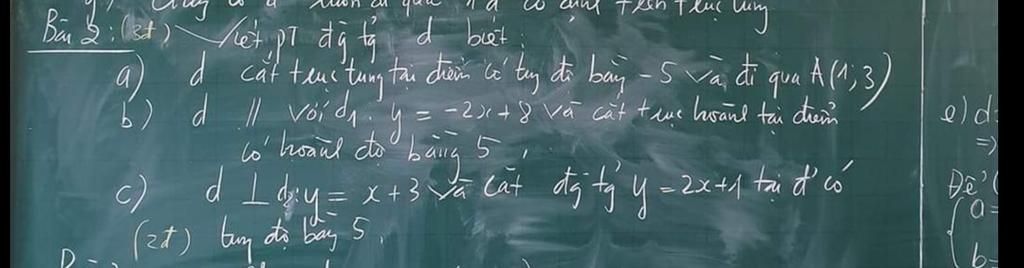 luôn đi qua 1 đ cố định trên trục tung
Bài 2: (3đ) Viết pt đg tg d biết:
a) d cắt trục tung tại điểm có tung độ bằng -5 và đi qua A(1;3)
b) d // với d1: y = -2x+8 và cắt trục hoành tại điểm
có hoành độ bằng 5.
c) d ⊥ d1: y = x+3 và cắt đg tg y = 2x+1 tại đ' có
(2đ) tung độ bằng 5.
e) d:
=>
Để
a=
b=